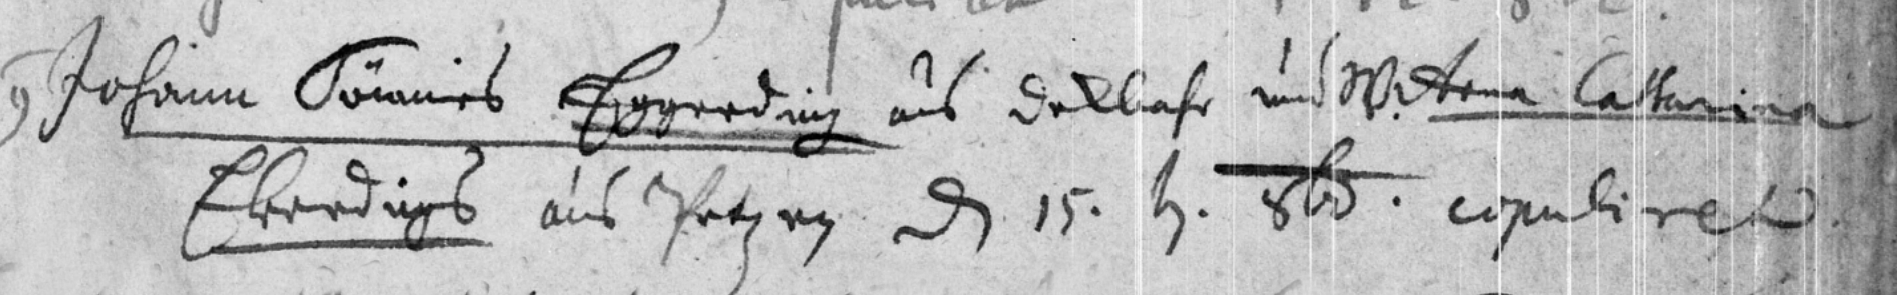 9 Johann Tönnies Eggerding aus Dedlbahr und W. Anna Catharina
Eberdings aus Petzen d 15. h. 8br. copuliret.